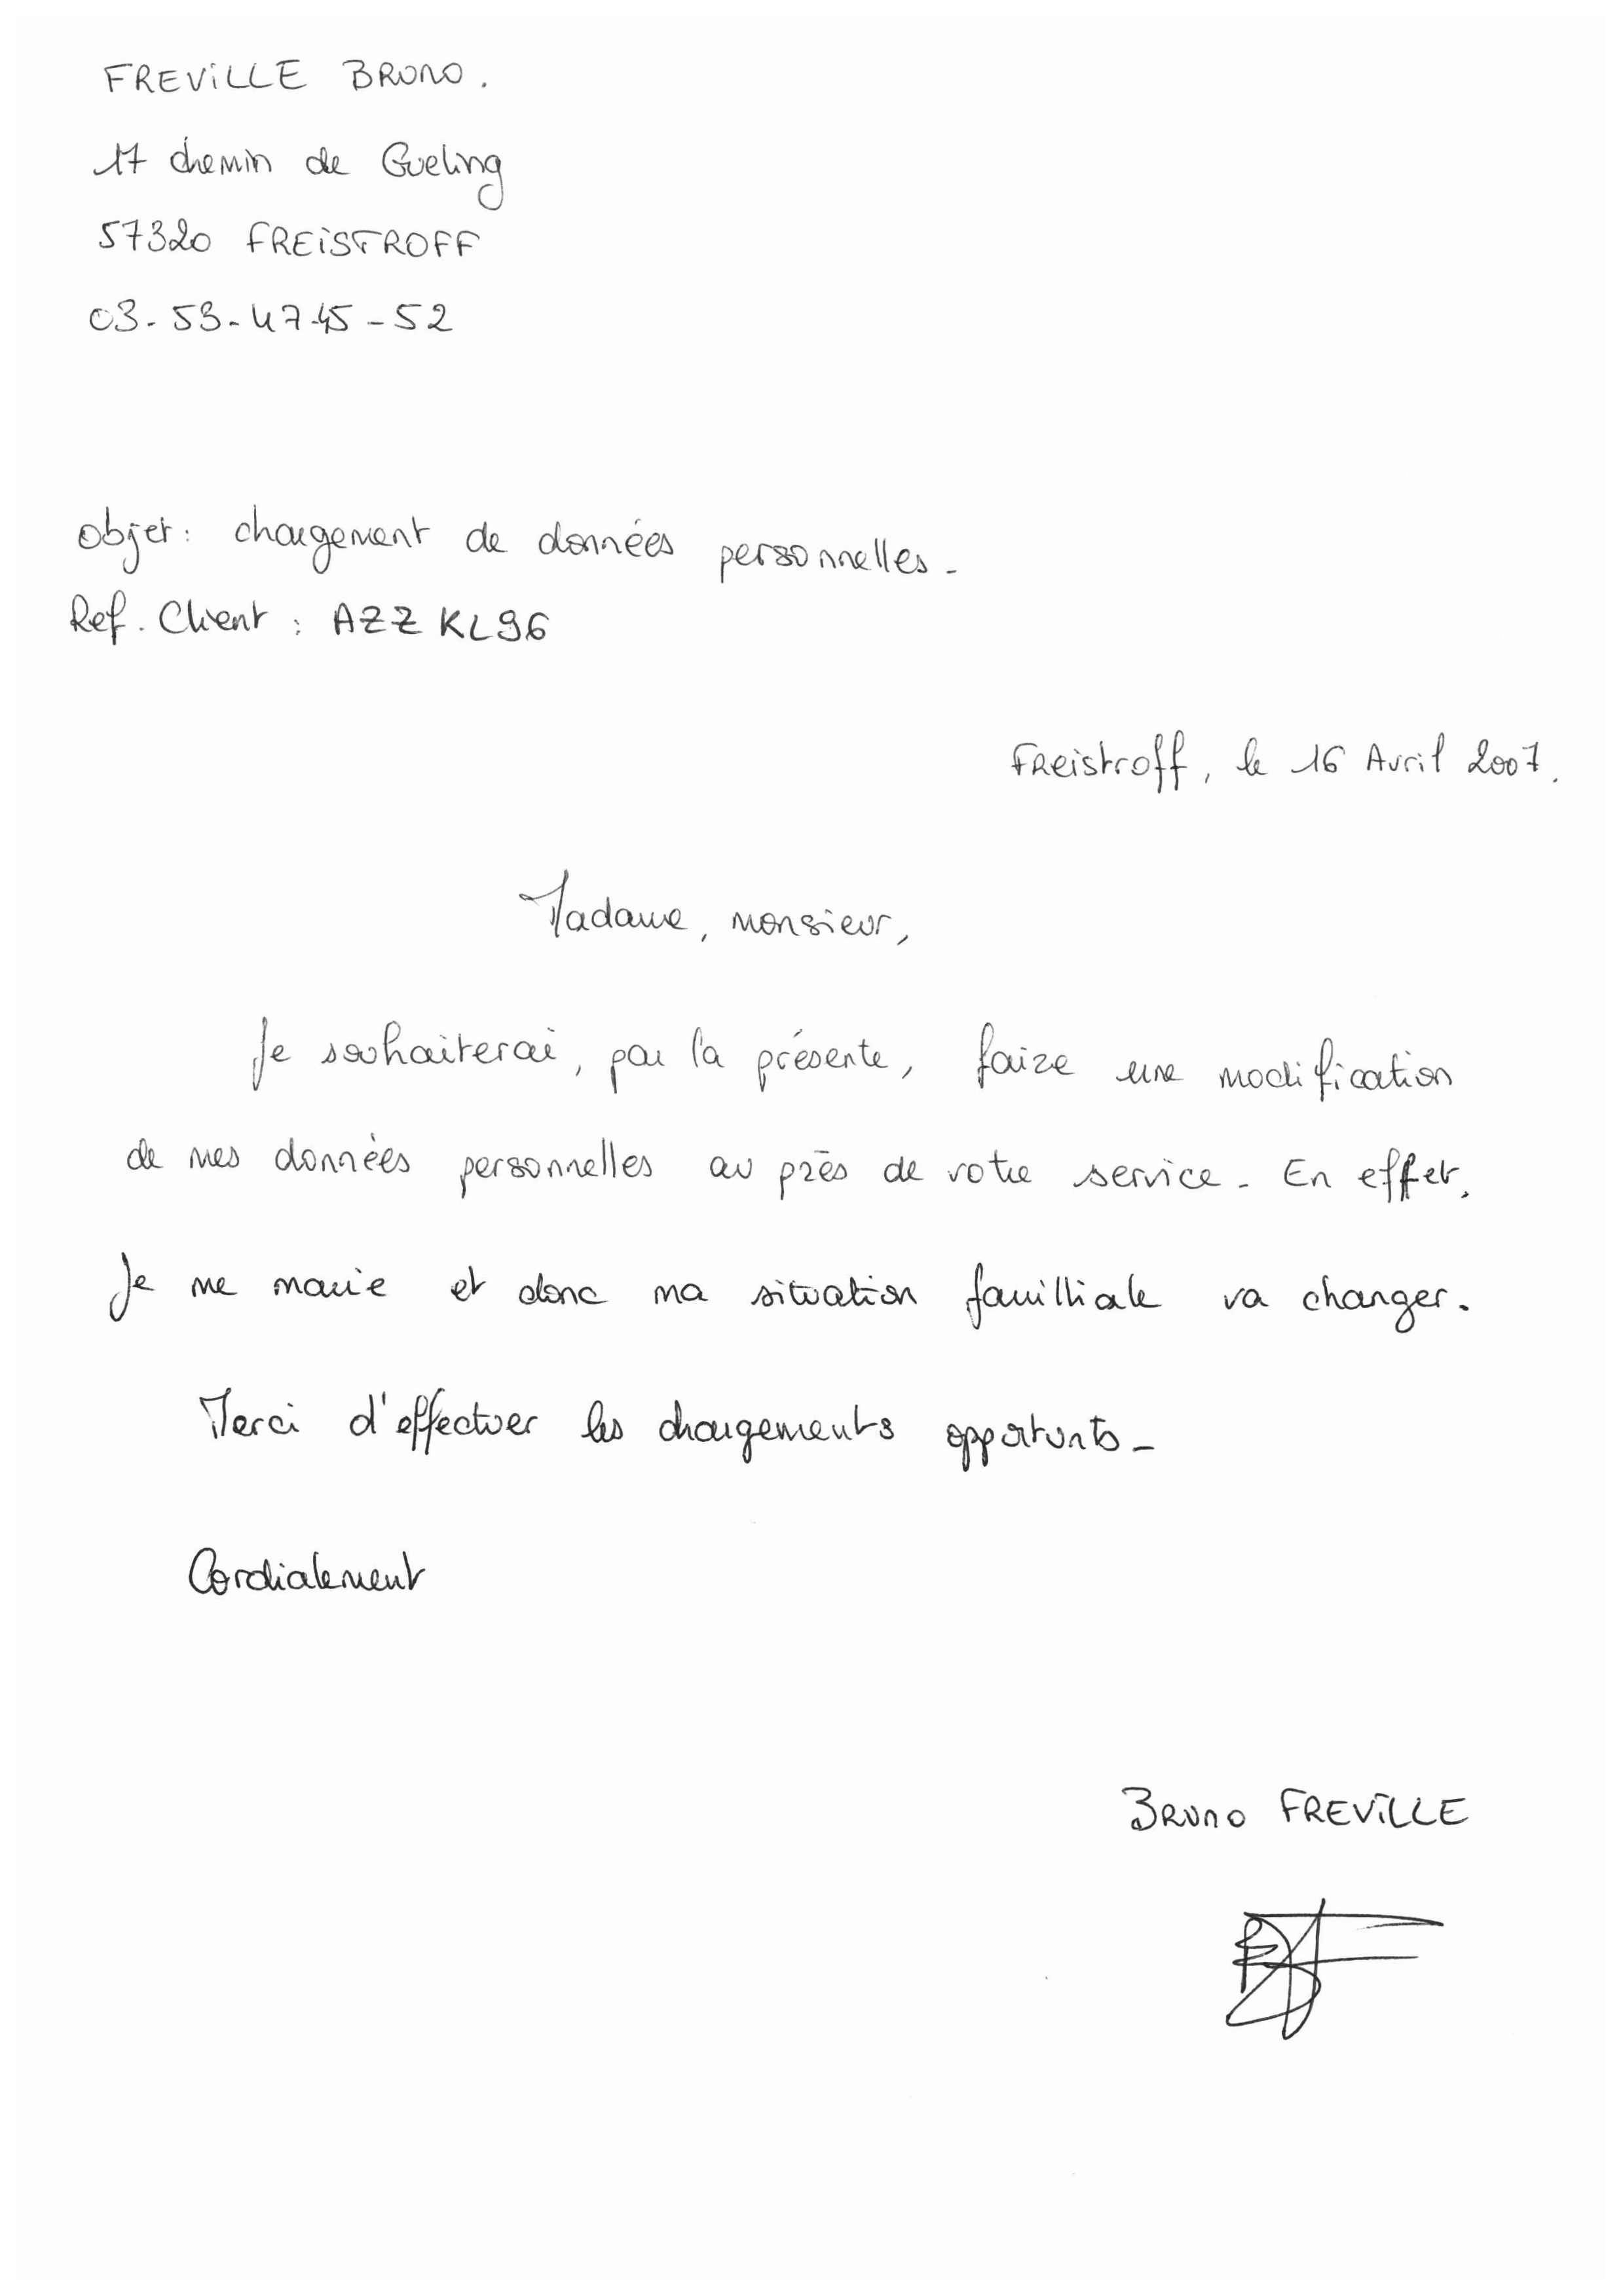 FREVILLE BRUNO.
17 chemin de Gueling
57320 FREISTROFF
03-53-47-45-52
Objet: changement de données personnelles-
Ref. Client : AZZKL96
Freistroff, le 16 Avril 2007.
Madame, monsieur,
Je souhaiterai, par la présente, faire une modification
de mes données personnelles au près de votre service. En effet,
Je me marie et donc ma situation familliale va changer.
Merci d'effectuer les changements opportunts-
Cordialement
BRUNO FREVILLE